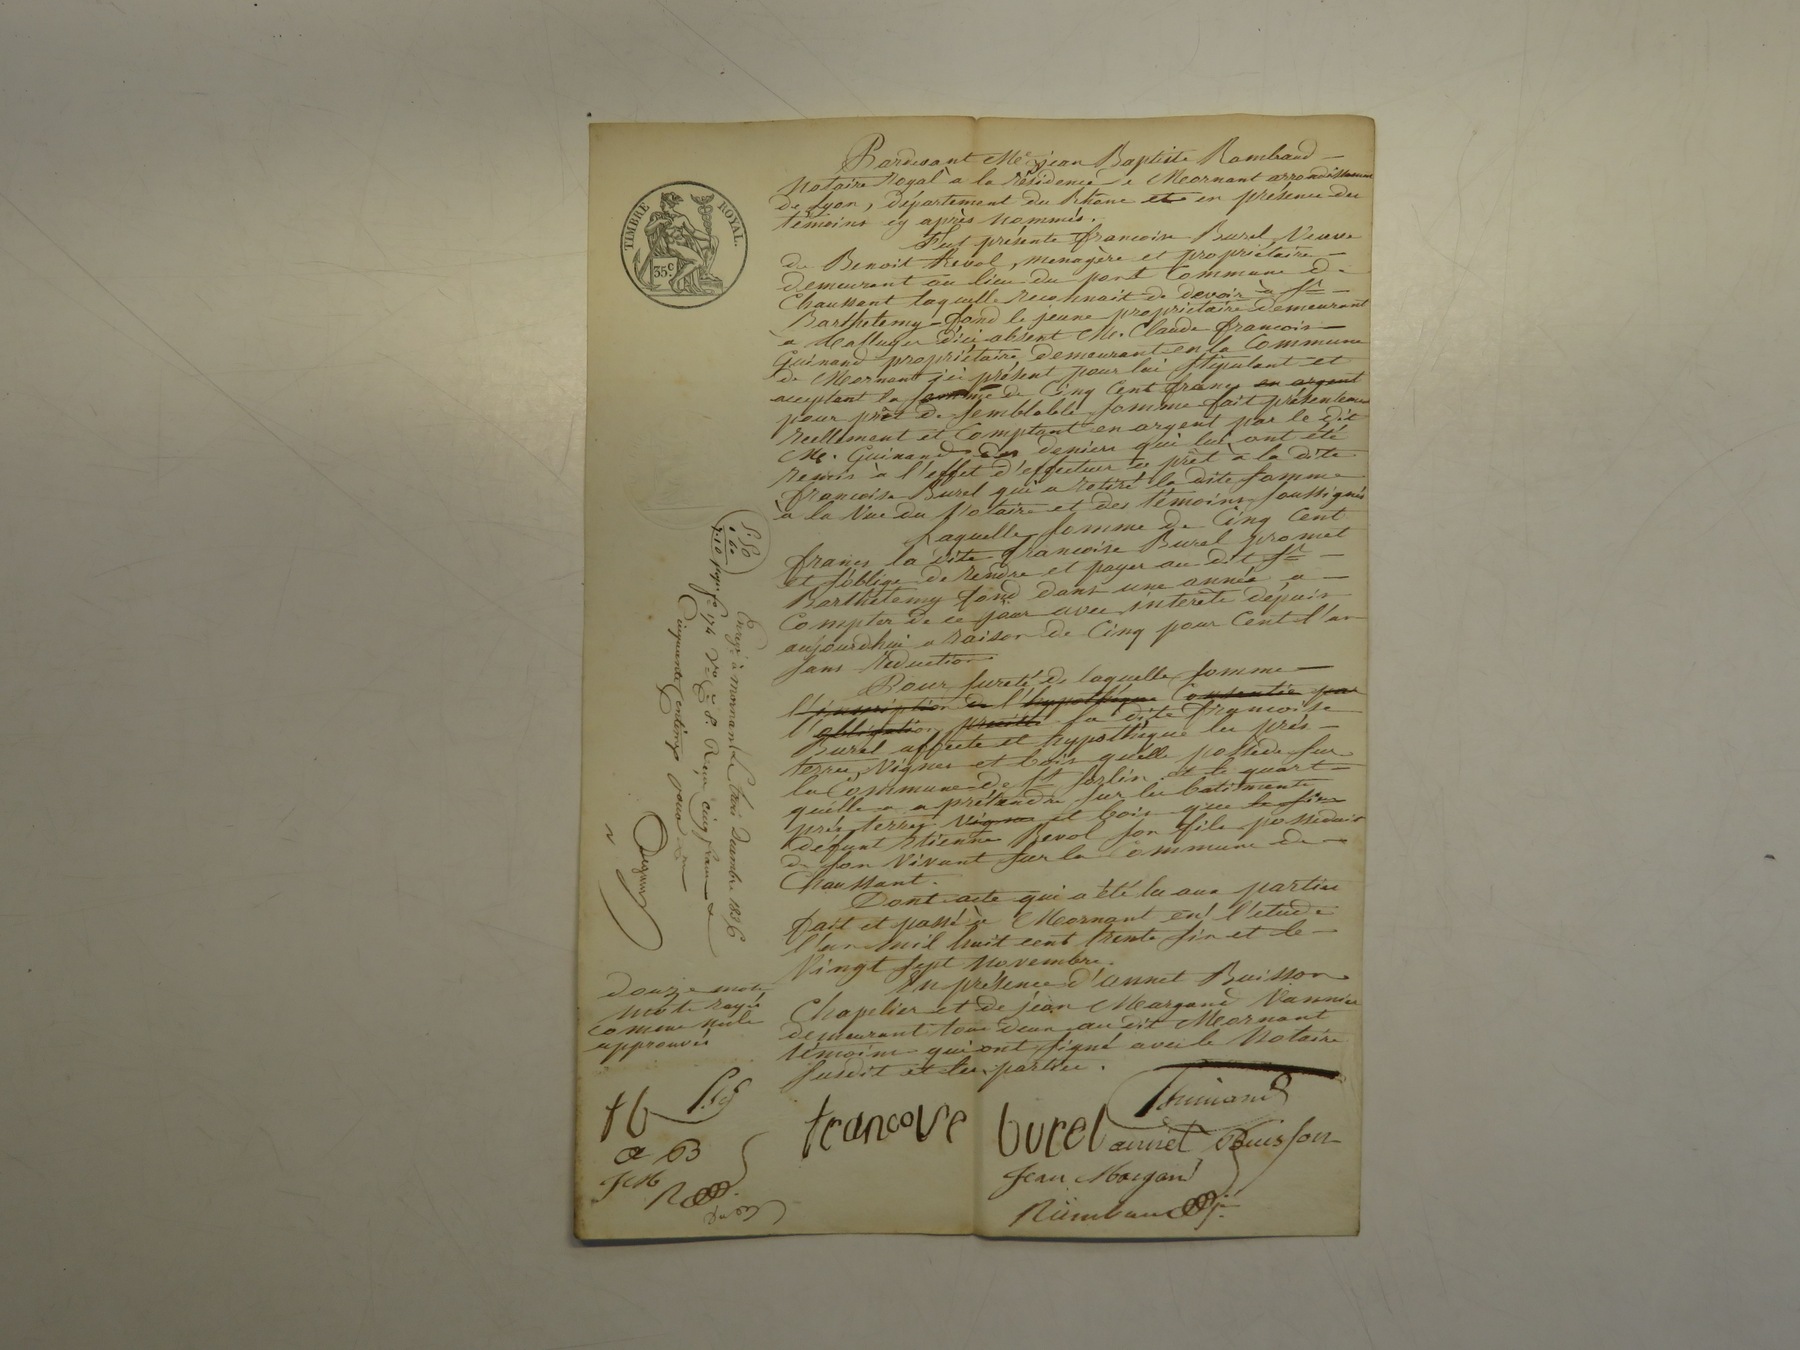 TIMBRE ROYAL.
35 c.
Pardevant Me jean Baptiste Rambaud
Notaire Royal à la résidence de Mornant arrondissement
de Lyon, département du Rhône et en présence des
témoins cy après nommés.
Fut présente francoise Burel Veuve
de Benoit Revol, menagère et propriétaire
demeurant au lieu du pont Commune de
Chaussant laquelle reconnait de devoir à sr
Barthelemy fond le jeune propriétaire demeurant
a d'ici absent Mr. Claude francois
Guinand propriétaire demeurant en la Commune
de Mornant ici présent pour lui stipulant et
acceptant la somme de Cinq Cent francs en argent
pour prêt de semblable somme fait présentement
reellement et Comptant en argent par le dit
Mr. Guinand des deniers qui lui ont été
remis à l'effet d'effectuer ce prêt à la dite
francoise Burel qui a retiré la dite somme
à la vue du Notaire et des témoins soussignés
Laquelle somme de Cinq Cent
francs la dite francoise Burel promet
et s'oblige de rendre et payer au dit sr
Barthelemy fond dans une année a
Compter de ce jour avec intérêts depuis
aujourdhui a raison de Cinq pour Cent l'an
sans réduction
Pour sureté de laquelle somme
l'inscription de l'hypothéque Consentie par
l'obligation précitée la dite francoise
Burel affecte et hypothéque les prés
terres, vignes et bois qu'elle possède sur
la Commune de St Sorlin et le quart
qu'elle a a prétendre sur les batiments
prés terres vignes et bois que le fils
défunt Etienne Revol son fils possédait
de son vivant sur la Commune de
Chaussant.
Dont acte qui a été lu aux parties
fait et passé à Mornant en l'etude
l'an mil huit cent trente six et le
Vingt sept novembre.
En présence d'annet Buisson
Chapelier et de jean Margand Vannier
demeurant tous deux au dit Mornant
témoins qui ont signé avec le Notaire
susdit et les parties.
Guinand
francoise burel
annet Buisson
Jean Margand
Rambaud
5.50
Enregé à mornant le trois Decembre 1836
fo 174 Vo C 8. Reçu cinq francs
Cinquante Centimes pour
douze mots
mots rayés
comme nuls
approuvés
f b
a B
J M
R